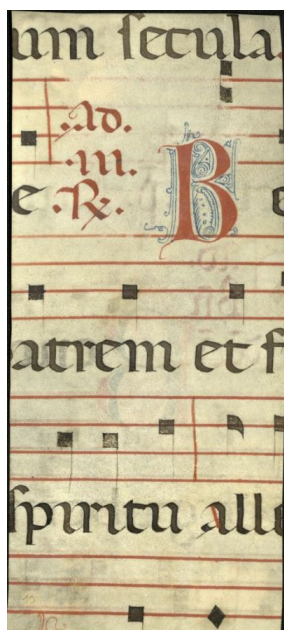 um secula.
.Ad.
.III.
e .℞. B e
atrem et f
spiritu alle